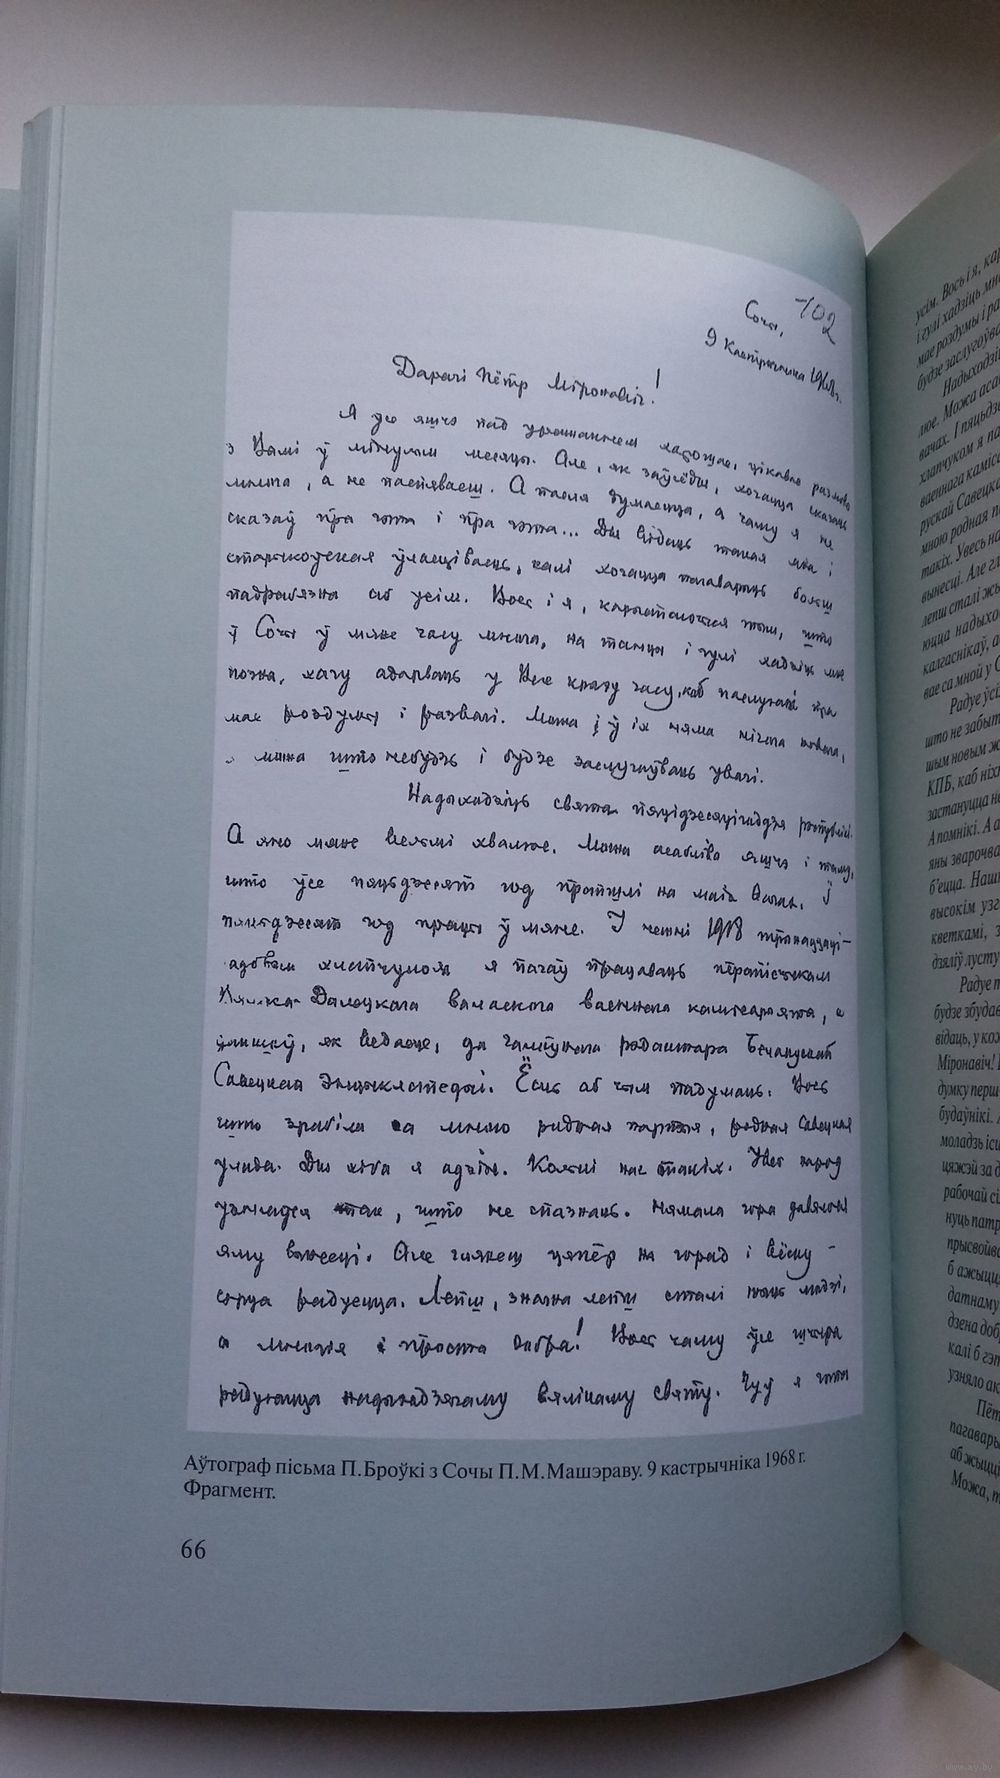 102
Сочы,
9 Кастрычніка 1968 г.
Дарагі Пётр Міронавіч!
Я ўсё яшчэ пад уражаннем харошае, цікавае размовы
з Вамі ў мінулым месяцы. Але, як заўсёды, хочацца сказаць
многа, а не паспяваеш. А пасля думаецца, а чаму я не
сказаў пра гэта і пра гэта... Ды відаць такая мая і
старыкоўская ўласцівасць, калі хочацца пагаварыць больш
падрабязна аб усім. Вось і я, карыстаючыся тым, што
ў Сочы ў мяне часу многа, на танцы і гулі хадзіць мне
позна, хачу адарваць у Вас крыху часу, каб паслухалі пра
мае роздумы і развагі. Можа і ў іх няма нічога новага,
а можа што небудзь і будзе заслугоўваць увагі.
Надыходзіць свята пяцідзесяцігоддзя рэспублікі.
А яно мяне вельмі хвалюе. Можа асабліва яшчэ і таму,
што ўсе пяцьдзесят год прайшлі на маіх вачах. І
пяцьдзесят год працы ў мяне. У жніўні 1918 трынаццаці-
гадовым хлапчуком я пачаў працаваць перапісчыкам
Вяліка-Далецкага валаснога ваеннага камісарыята, а
дайшоў, як ведаеце, да галоўнага рэдактара Беларускай
Савецкай Энцыклапедыі. Ёсць аб чым падумаць. Вось
што зрабіла са мною родная партыя, родная Савецкая
улада. Ды хіба я адзін. Колькі нас такіх. Увесь народ
узняўся так, што не спазнаць. Нямала гора давялося
яму вынесці. Але глянеш цяпер на горад і вёску —
сэрца радуецца. Лепш, значна лепш сталі жыць людзі,
а многія і проста добра! Вось чаму ўсе шчыра
радуюцца надыходзячаму вялікаму святу. Чуў я гэта
Аўтограф пісьма П.Броўкі з Сочы П.М.Машэраву. 9 кастрычніка 1968 г.
Фрагмент.
66
усім. Вось і я, кар
і гулі хадзіць мн
мае роздумы і ра
будзе заслугоўва
Надыходзі
люе. Можа аса
вачах. І пяцьдз
хлапчуком я па
ваеннага каміса
рускай Савецка
мною родная п
такіх. Увесь на
вынесці. Але гл
лепш сталі жы
юцца надыхо
калгаснікаў, а
вае са мной у С
Радуе ўсі
што не забыт
шым новым ж
КПБ, каб ніхт
застануцца не
А помнікі. А а
яны зварочва
б'ецца. Наш
высокім узг
кветкамі, з
дзяліў лусту
Радуе т
будзе збудав
відаць, у кож
Міронавіч!
думку перш
будаўнікі. А
моладзь ісц
цяжэй за д
рабочай сіл
нуць патр
прысвойва
б ажыцц
датнаму
дзена доб
калі б гэт
узняло ак
Пёт
пагавары
аб жыцці
Можа, т
www.ay.by